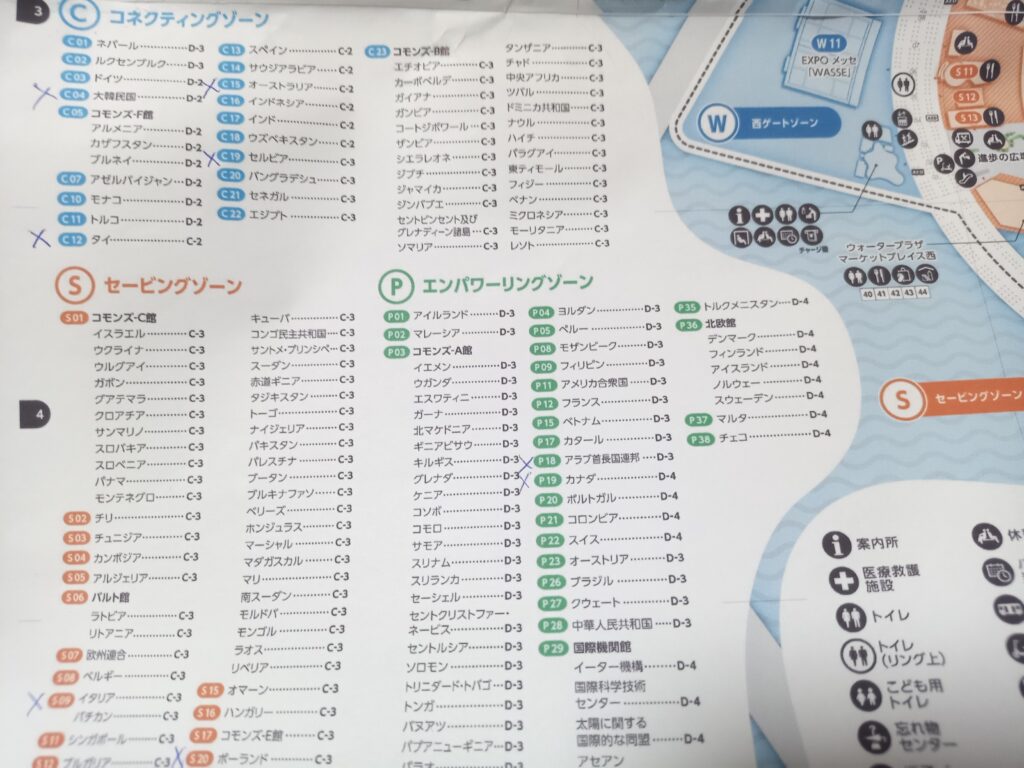 3
C コネクティングゾーン
C01 ネパール D-3
C02 ルクセンブルク D-3
C03 ドイツ D-2
C04 大韓民国 D-2
C05 コモンズ-F館
アルメニア D-2
カザフスタン D-2
ブルネイ D-2
C07 アゼルバイジャン D-2
C10 モナコ D-2
C11 トルコ D-2
C12 タイ C-2
C13 スペイン C-2
C14 サウジアラビア C-2
C15 オーストラリア C-2
C16 インドネシア C-2
C17 インド C-2
C18 ウズベキスタン C-2
C19 セルビア C-3
C20 バングラデシュ C-3
C21 セネガル C-3
C22 エジプト C-3
C23 コモンズ-B館
エチオピア C-3
カーボベルデ C-3
ガイアナ C-3
ガンビア C-3
コートジボワール C-3
ザンビア C-3
シエラレオネ C-3
ジブチ C-3
ジャマイカ C-3
ジンバブエ C-3
セントビンセント及び
グレナディーン諸島 C-3
ソマリア C-3
タンザニア C-3
チャド C-3
中央アフリカ C-3
ツバル C-3
ドミニカ共和国 C-3
ナウル C-3
ハイチ C-3
パラグアイ C-3
東ティモール C-3
フィジー C-3
ベナン C-3
ミクロネシア C-3
モーリタニア C-3
レソト C-3
S セービングゾーン
S01 コモンズ-C館
イスラエル C-3
ウクライナ C-3
ウルグアイ C-3
ガボン C-3
グアテマラ C-3
クロアチア C-3
サンマリノ C-3
スロバキア C-3
スロベニア C-3
パナマ C-3
モンテネグロ C-3
S02 チリ C-3
S03 チュニジア C-3
S04 カンボジア C-3
S05 アルジェリア C-3
S06 バルト館
ラトビア C-3
リトアニア C-3
S07 欧州連合 C-3
S08 ベルギー C-3
S09 イタリア C-3
バチカン C-3
S11 シンガポール C-3
S12 ブルガリア C-3
キューバ C-3
コンゴ民主共和国 C-3
サントメ・プリンシペ C-3
スーダン C-3
赤道ギニア C-3
タジキスタン C-3
トーゴ C-3
ナイジェリア C-3
パキスタン C-3
パレスチナ C-3
ブータン C-3
ブルキナファソ C-3
ベリーズ C-3
ホンジュラス C-3
マーシャル C-3
マダガスカル C-3
マリ C-3
南スーダン C-3
モルドバ C-3
モンゴル C-3
ラオス C-3
リベリア C-3
S15 オマーン C-3
S16 ハンガリー C-3
S17 コモンズ-E館 C-3
S20 ポーランド C-3
P エンパワーリングゾーン
P01 アイルランド D-3
P02 マレーシア D-3
P03 コモンズ-A館
イエメン D-3
ウガンダ D-3
エスワティニ D-3
ガーナ D-3
北マケドニア D-3
ギニアビサウ D-3
キルギス D-3
グレナダ D-3
ケニア D-3
コソボ D-3
コモロ D-3
サモア D-3
スリナム D-3
スリランカ D-3
セーシェル D-3
セントクリストファー・
ネービス D-3
セントルシア D-3
ソロモン D-3
トリニダード・トバゴ D-3
トンガ D-3
バヌアツ D-3
パプアニューギニア D-3
パラオ D-3
P04 ヨルダン D-3
P05 ペルー D-3
P08 モザンビーク D-3
P09 フィリピン D-3
P11 アメリカ合衆国 D-3
P12 フランス D-3
P15 ベトナム D-3
P17 カタール D-3
P18 アラブ首長国連邦 D-3
P19 カナダ D-4
P20 ポルトガル D-4
P21 コロンビア D-4
P22 スイス D-4
P23 オーストリア D-3
P26 ブラジル D-3
P27 クウェート D-3
P28 中華人民共和国 D-3
P29 国際機関館
イーター機構 D-4
国際科学技術
センター D-4
太陽に関する
国際的な同盟 D-4
アセアン
P35 トルクメニスタン D-4
P36 北欧館
デンマーク D-4
フィンランド D-4
アイスランド D-4
ノルウェー D-4
スウェーデン D-4
P37 マルタ D-4
P38 チェコ D-4
4
W11
EXPO メッセ
「WASSE」
W 西ゲートゾーン
S11
S12
S13
進歩の広場
チャージ機
ウォータープラザ
マーケットプレイス西
40 41 42 43 44
S セービングゾーン
案内所
医療救護
施設
トイレ
トイレ
(リング上)
こども用
トイレ
忘れ物
センター
休